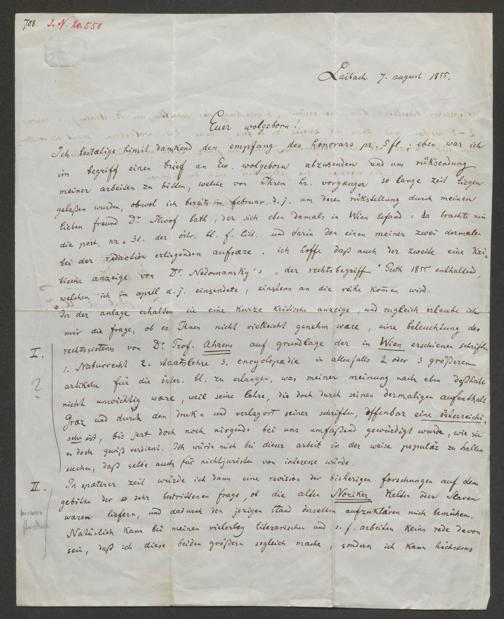 708. J. N. 20.550
Laibach 7. august 1855.
Euer wolgeborn!
Ich bestätige hiemit dankend den empfang des honorars pr. 5 fl.; eben war ich
im begriff einen brief an Eu. wolgeborn abzusenden und um rüksendung
meiner arbeiten zu bitten, welche vor Ihren hr. vorgänger so lange zeit liegen
gelaßen wurden, obwol ich bereits im februar d. j. um deren rükstellung durch meinen
lieben freund Dr. bath, der sich eben damals in Wien befand; da brachte mir
die post nr. 31. der östr. bl. f. litt. und darin den einen meiner zwei dermalen
bei der redaction erligenden aufsäze. ich hoffe daß auch der zweite eine kri-
tische anzeige von Dr. "der rechtsbegriff" 1855 enthaltend,
welchen ich in april d. j. einsendete, einstens an die reihe komen wird.
In der anlage erhalten sie eine kurze kritische anzeige, und zugleich erlaube ich
mir die frage, ob es Ihnen nicht vielleicht genehm wäre, eine beleuchtung des
I. rechtssistems von Dr. Prof. Ahrens auf grundlage der in Wien erschienen schriften
?
1. Naturrecht 2. staatslehre 3. encyclopädie in allenfalls 2 oder 3 größeren
artikeln für die öster. bl. zu erlangen, was meiner meinung nach eben deßhalb
nicht unwichtig wäre, weil seine lehre, die doch durch seinen dermaligen aufenthalt
Graz und durch den druk und verlagsort seiner schriften, offenbar eine österreichi-
sche ist, bis jezt doch noch nirgends bei uns umfaßend gewürdigt wurde, wie sie
es doch gewiß verdient. Ich würde mich bei dieser arbeit in der weise populär zu halten
suchen, daß selbe auch für nichtjuristen von interesse würde.
II. In späterer zeit würde ich dann eine revision der bisherigen forschungen auf dem
gebiethe der so sehr bestrittenen frage, ob die alten Noriker Kelten oder Slaven
waren liefern, und dadurch den jezigen stand derselben aufzuklären mich bemühen.
Natürlich kann bei meinen vielerlei literarischen und s. f. arbeiten keine rede davon
sein, daß ich diese beiden größern sogleich mache, sondern ich kann höchstens